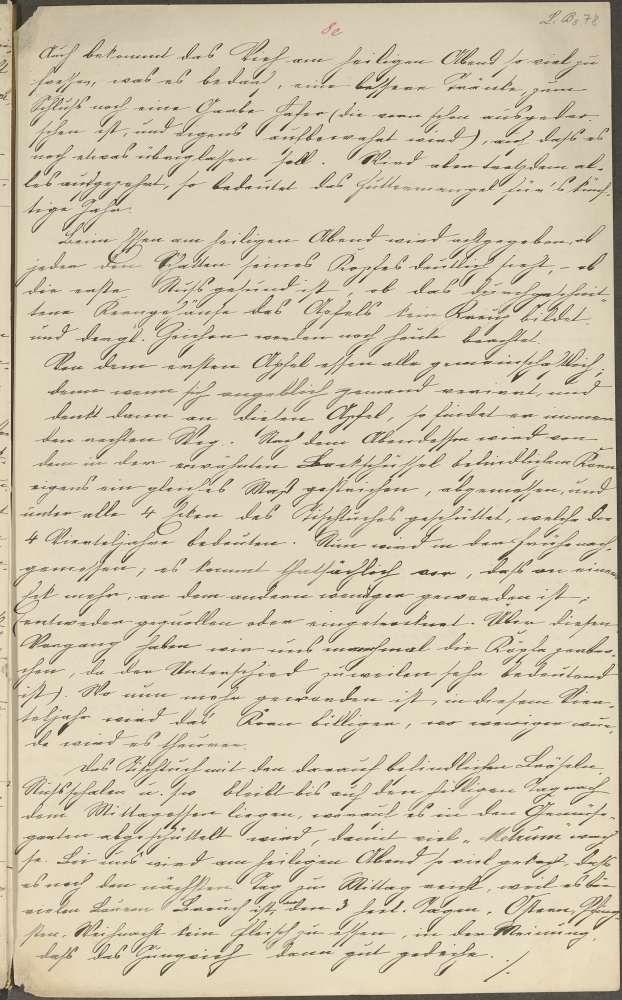 8c
Auch bekommt das Vieh am heiligen Abend so viel zu
fressen, was es bedarf, eine bessere Tränke, zum
Schluß noch eine Garbe Hafer (die vorn schon ausgedro-
schen ist, und eigens aufbewahrt wird), auf daß es
noch etwas übriglassen soll. Wird aber trotzdem al-
les aufgezehrt, so bedeutet das Futtermangel für's künf-
tige Jahr.
Beim Essen am heiligen Abend wird achtgegeben, ob
jeder den Schatten seines Kopfes deutlich sieht, – ob
die erste Nuß gesund ist, ob das durchgeschnit-
tene Kerngehäuse des Apfels kein Kreuz bildet
und dergl. Zeichen werden noch heute beachtet.
Von dem ersten Apfel essen alle gemeinschaftlich,
denn wenn sich angeblich jemand verirrt, und
denkt dann an diesen Apfel, so findet er immer
den rechten Weg. Nach dem Abendessen wird von
dem in der erwähnten Backschüssel befindlichen Korn
eigens ein gleiches Maß gestrichen, abgemessen, und
unter alle 4 Ecken des Tischtuches geschüttet, welche die
4 Vierteljahre bedeuten. Nun wird in der Frühe nach-
gemessen; es kommt thatsächlich vor, daß an einem
Eck mehr, an dem andern weniger geworden ist,
(entweder gequollen oder eingetrocknet. Über diesen
Vorgang haben wir uns manchmal die Köpfe zerbro-
chen, da der Unterschied zuweilen sehr bedeutend
ist). Wo nun mehr geworden ist, in diesem Vier-
teljahr wird das Korn billiger, wo weniger wur-
de wird es theurer.
Das Tischtuch mit den darauf befindlichen Bröseln,
Nußschalen u. so bleibt bis auf den heiligen Tag nach
dem Mittagessen liegen, worauf es in den Gemüse-
garten abgeschüttelt wird, damit viel „ wach-
se. Bei uns wird am heiligen Abend so viel gekocht, daß
es noch den nächsten Tag zu Mittag reicht, weil es bei
vielen Bauern Brauch ist, an den 3 heil. Tagen, Ostern, Pfing-
sten, Weihnacht kein Fleisch zu essen, in der Meinung,
daß das Jungvieh dann gut gedeihe. ./.